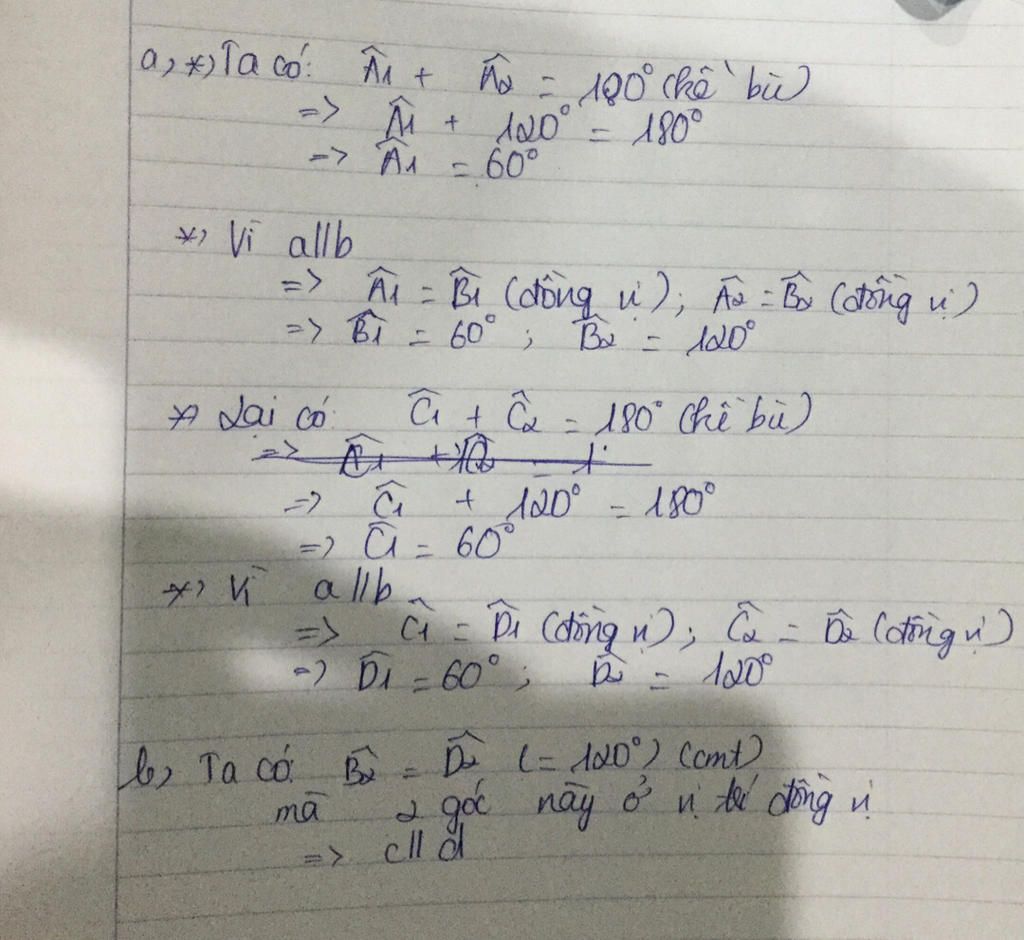 a, *, Ta có: Â1 + Â2 = 180° (kề bù)
=> Â1 + 120° = 180°
=> Â1 = 60°
*, Vì a//b
=> Â1 = B̂1 (đồng vị); Â2 = B̂2 (đồng vị)
=> B̂1 = 60° ; B̂2 = 120°
*, Lại có: Ĉ1 + Ĉ2 = 180° (kề bù)
=> Ĉ1 + 120° = 180°
=> Ĉ1 = 60°
*, Vì a//b
=> Ĉ1 = D̂1 (đồng vị); Ĉ2 = D̂2 (đồng vị)
=> D̂1 = 60° ; D̂2 = 120°
b, Ta có: B̂2 = D̂2 (= 120°) (cmt)
mà 2 góc này ở vị trí đồng vị
=> c//d